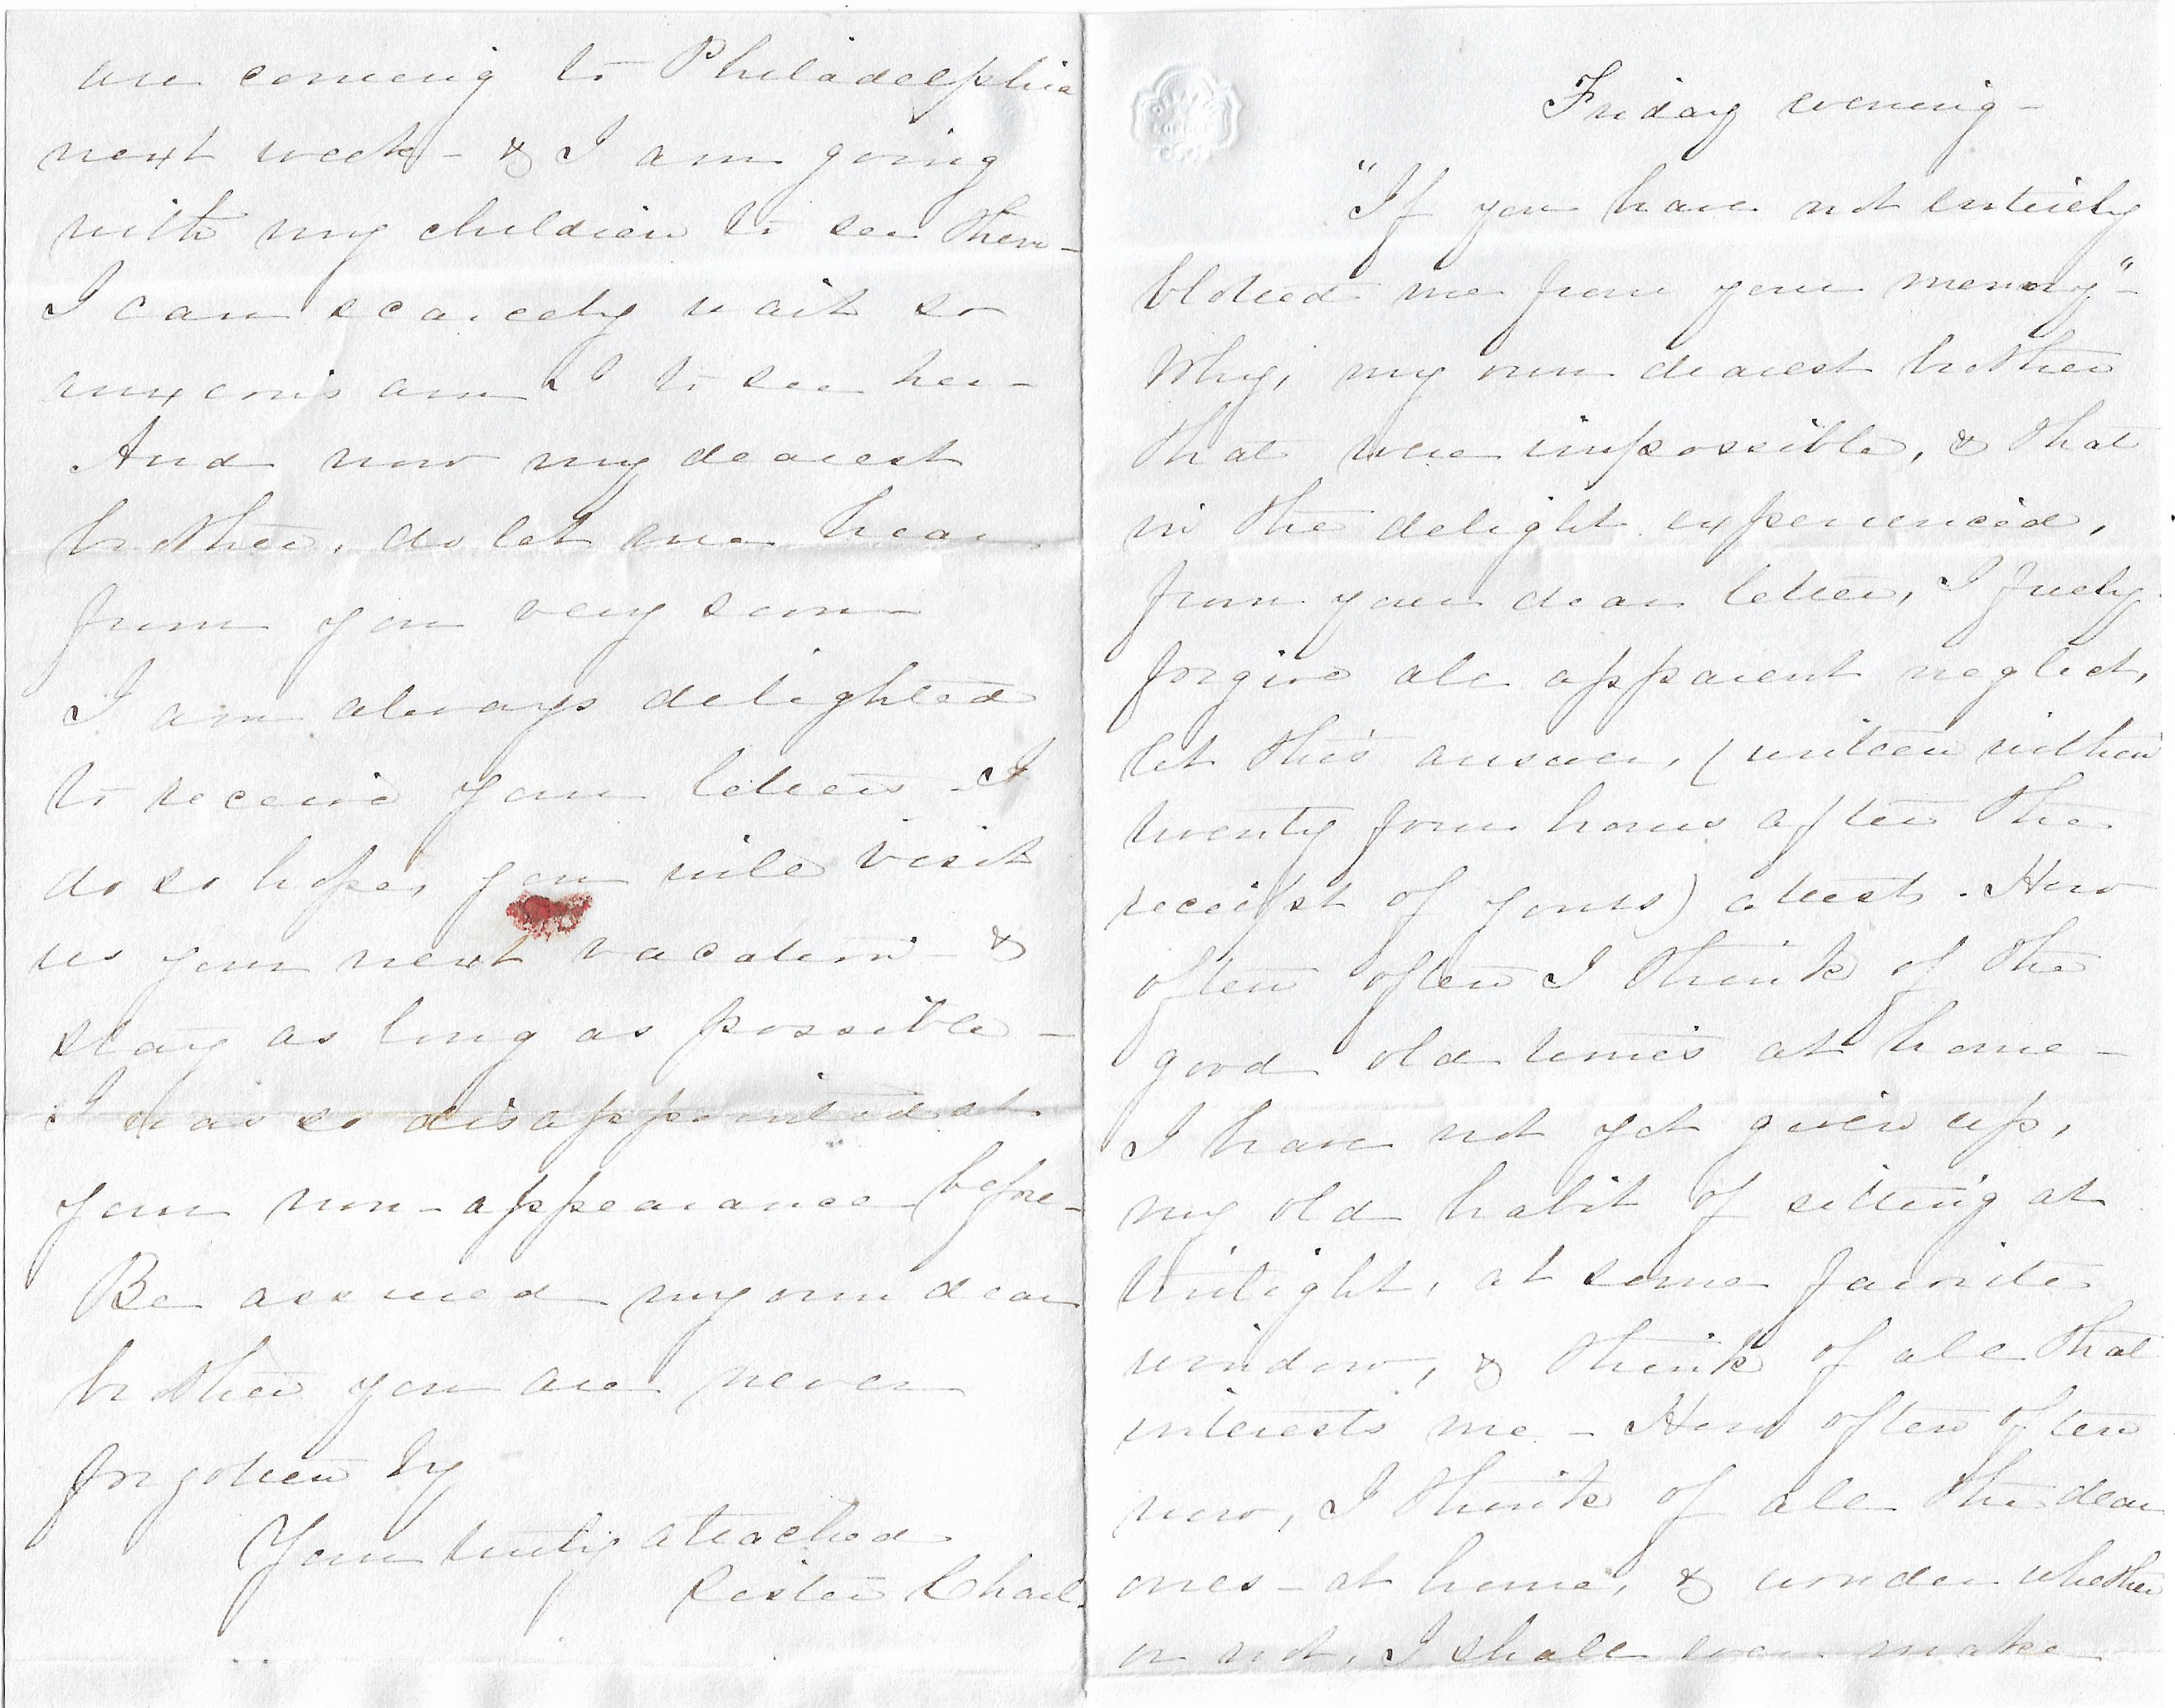 are coming to Philadelphia
next week - & I am going
with my children to see them -
I can scarcely wait so
anxious am I to see her -
And now my dearest
brother, do let me hear
from you very soon
I am always delighted
to receive your letters - I
do so hope, you will visit
us your next vacation - &
stay as long as possible -
I was so disappointed at
your non-appearance before -
Be assured my own dear
brother you are never
forgotten by
Your truly attached
Sister Charl.
Friday evening -
"If you have not entirely
blotted me from your memory" -
Why, my own dearest brother
that were impossible, & that
in the delight experienced,
from your dear letter, I freely
forgive all apparent neglect,
let this answer, (written within
twenty four hours after the
receipt of yours) attest. How
often often I think of the
good old times at home -
I have not yet given up,
my old habit of sitting at
twilight, at some favorite
window, & think of all that
interests me - How often often
now, I think of all the dear
ones - at home, & wonder whether
or not, I shall ever make